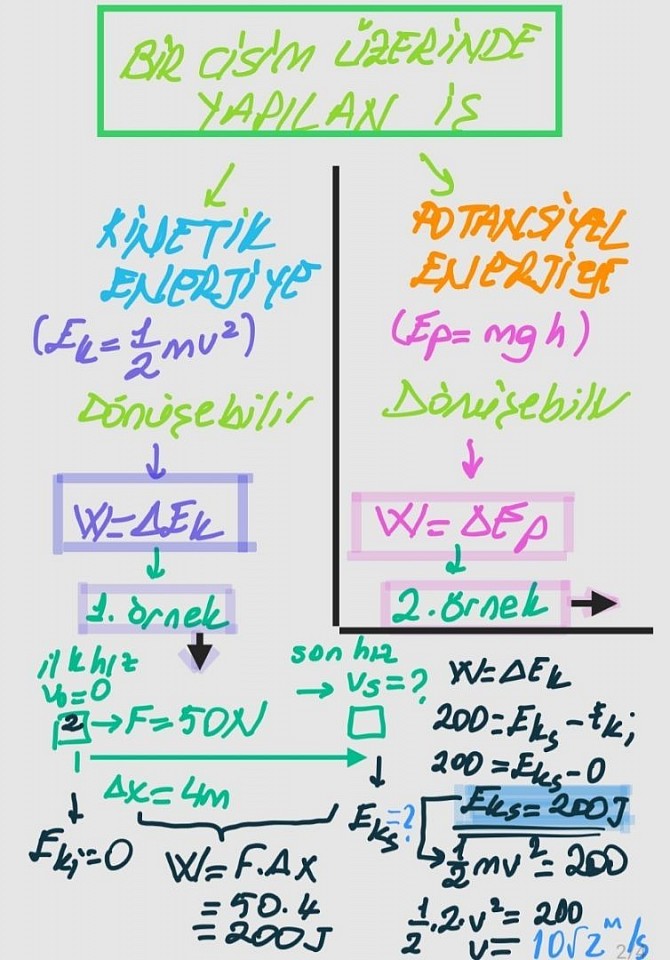 BİR CİSİM ÜZERİNDE
YAPILAN İŞ
KİNETİK
ENERJİYE
(Ek=1/2mv²)
Dönüşebilir
W=ΔEk
1. örnek
POTANSİYEL
ENERJİYE
(Ep=mgh)
Dönüşebilir
W=ΔEp
2. örnek
ilk hız
v₀=0
2
→F=50N
Δx=4m
Eki=0
W=F.Δx
=50.4
=200J
son hız
→ vs=?
Eks=?
W=ΔEk
200=Eks-Eki
200=Eks-0
Eks=200J
1/2mv²=200
1/2.2.v²=200
v=10√2 m/s